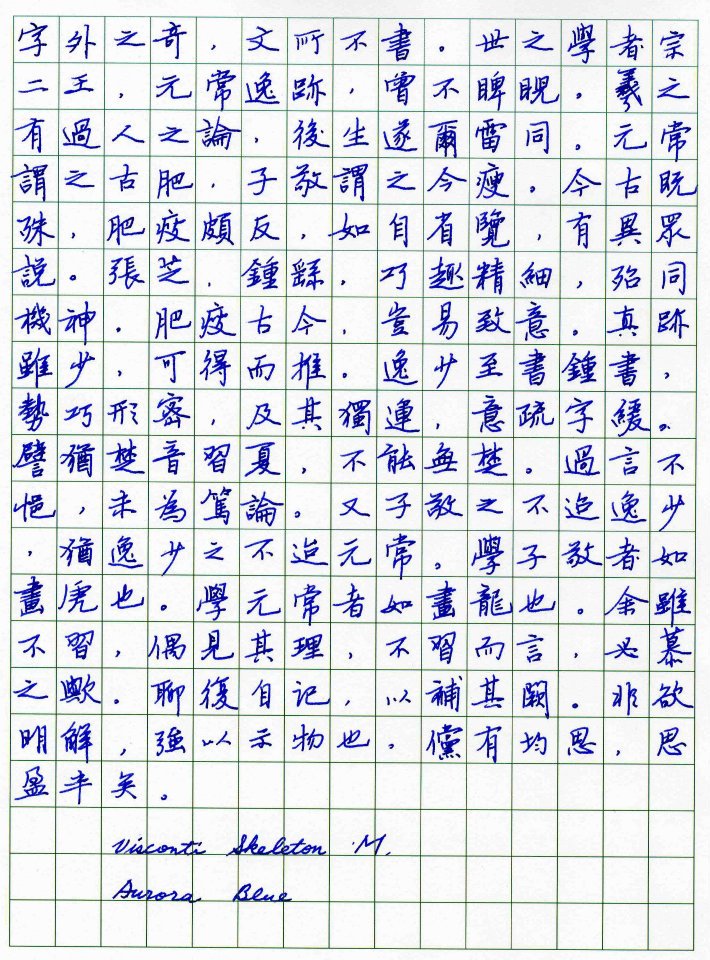 字外之奇，文所不書。世之學者宗
二王，元常逸跡，曾不睥睨。羲之
有過人之論，後生遂爾雷同。元常
謂之古肥，子敬謂之今瘦。今古既
殊，肥瘦頗反，如自省覽，有異眾
説。張芝，鍾繇，巧趣精細，殆同
機神。肥瘦古今，豈易致意。真跡
雖少，可得而推。逸少至書鍾書，
勢巧形密，及其獨運，意疏字緩。
譬猶楚音習夏，不能無楚。過言不
悒，未為篤論。又子敬之不迨逸少
，猶逸少之不迨元常。學子敬者如
畫虎也。學元常者如畫龍也。余雖
不習，偶見其理，不習而言，必慕
之歟。聊復自记，以補其闕。非欲
明解，強以示物也。儻有均思，思
盈半矣。
Visconti Skeleton M.
Aurora Blue